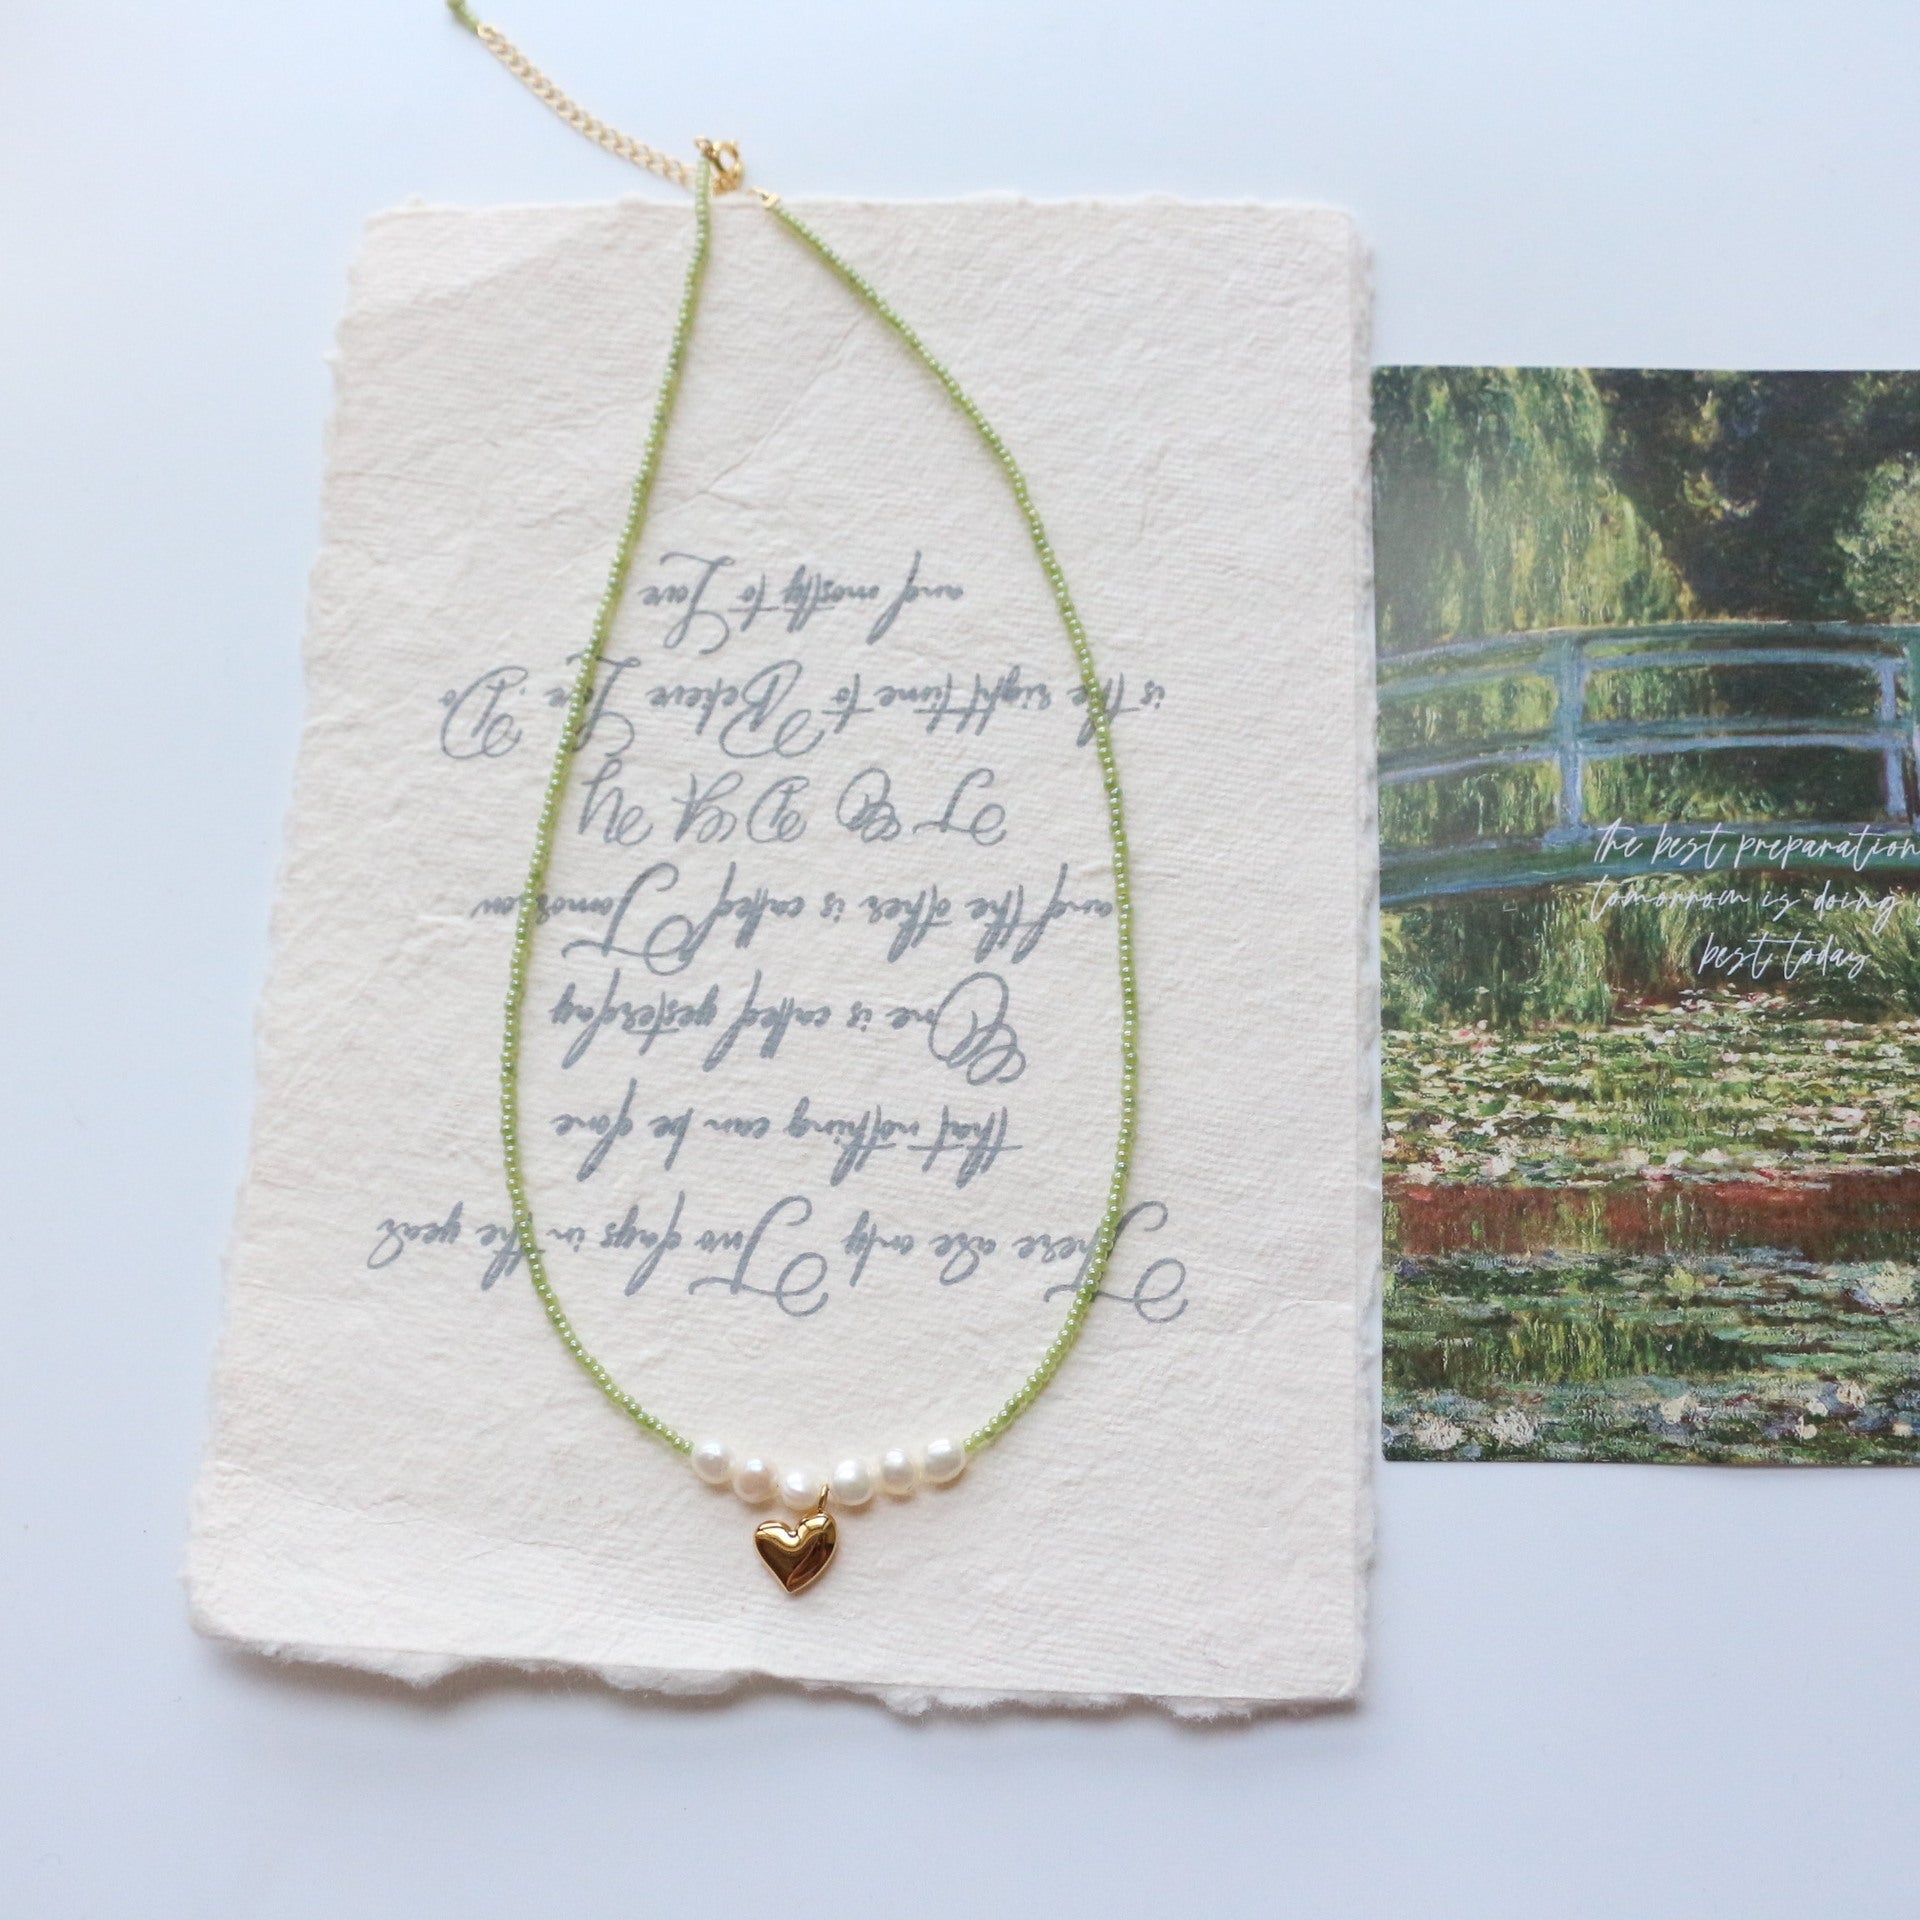 There are only Two days in the year
that nothing can be done
One is called yesterday
and the other is called Tomorrow
TODAY
is the right time to Believe Love . Do
and mostly to Love
the best preparation
tomorrow is doing
best today